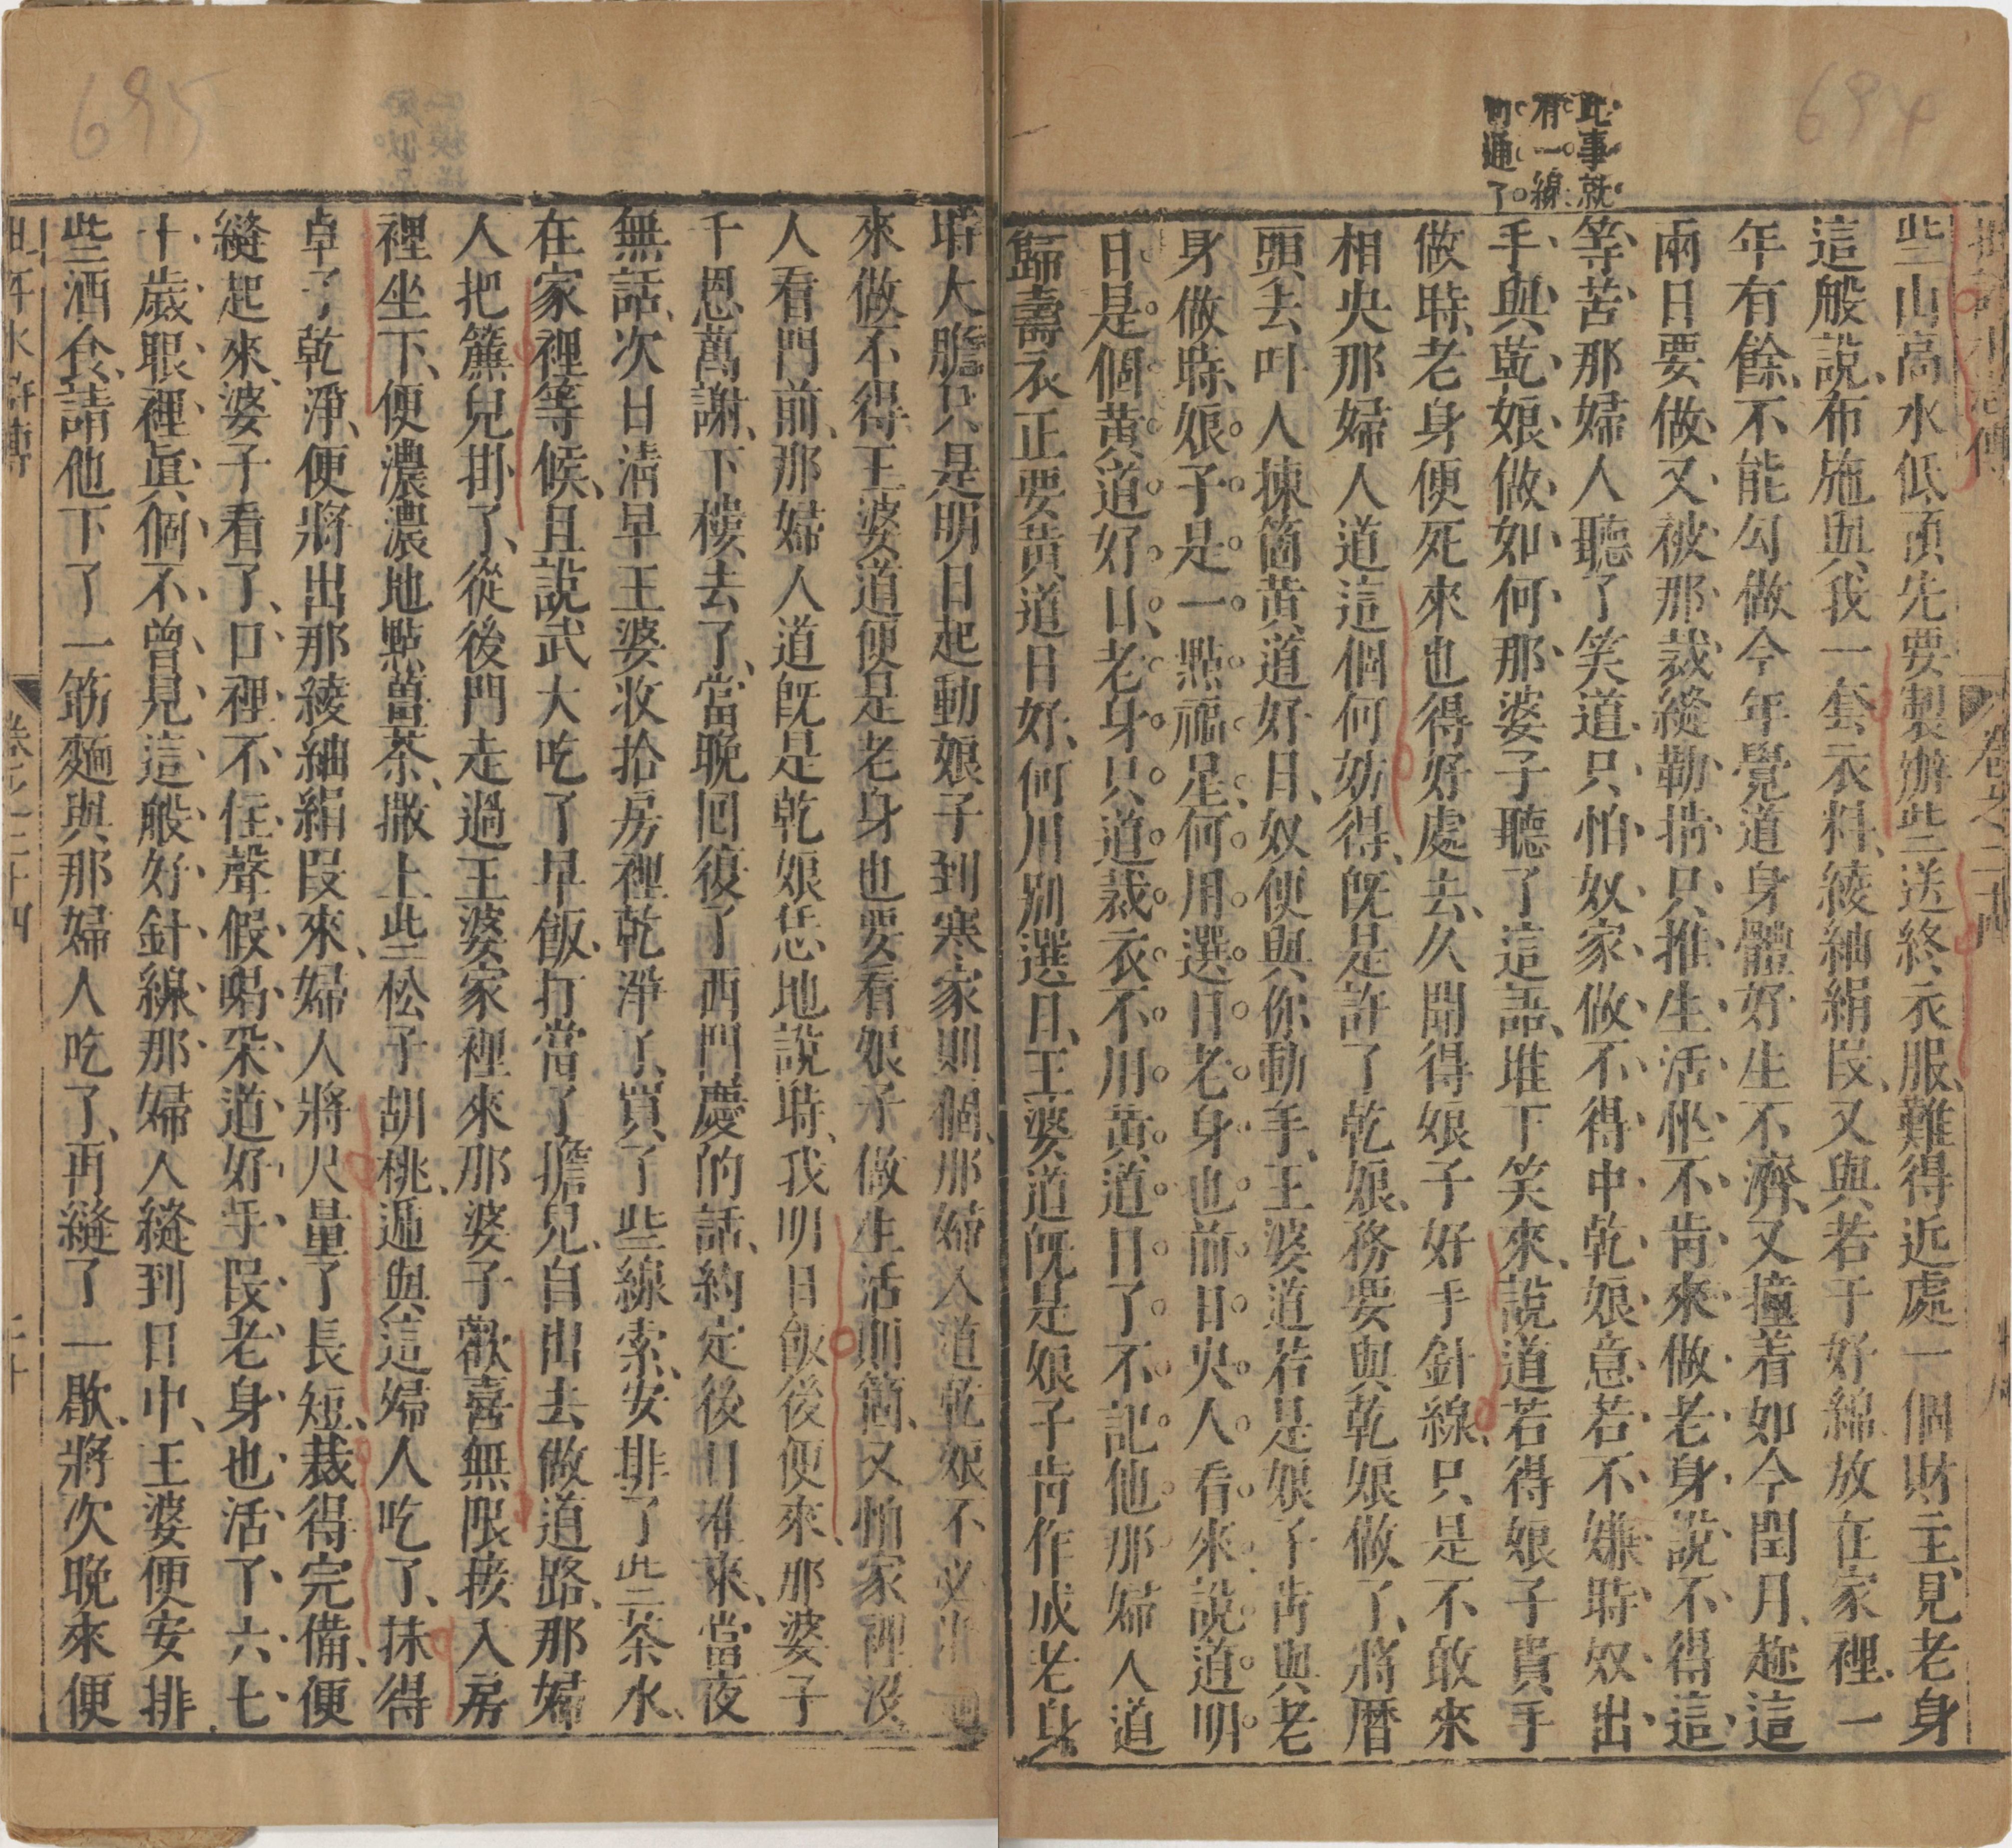 694
此事就
有一線
的通了
些山高水低頭先要製辦些送終衣服難得近處一個財主見老身
這般說布施與我一套衣料綾紬絹段又與若干好綿放在家裡一
年有餘不能勾做今年覺道身體好生不濟又撞着如今閏月趂這
兩日要做又被那裁縫勒掯只推生活忙不肯來做老身說不得這
等苦那婦人聽了笑道只怕奴家做不得中乾娘意若不嫌時奴出
手與乾娘做如何那婆子聽了這話堆下笑來說道若得娘子貴手
做時老身便死來也得好處去久聞得娘子好手針線只是不敢來
相央那婦人道這個何妨得旣是許了乾娘務要與乾娘做了將曆
頭去叫人揀箇黃道好日奴便與你動手王婆道若是娘子肯與老
身做時娘子是一點福星何用選日老身也前日央人看來說道明
日是個黃道好日老身只道裁衣不用黃道日了不記他那婦人道
歸壽衣正要黃道日好何用別選日王婆道旣是娘子肯作成老身
695
時大膽只是明日起動娘子到寒家則個那婦人道乾娘不必將
來做不得王婆道便是老身也要看娘子做生活則箇又怕家裡沒
人看門前那婦人道旣是乾娘恁地說時我明日飯後便來那婆子
千恩萬謝下樓去了當晚回復了西門慶的話約定後日准來當夜
無話次日淸早王婆收拾房裡乾淨了買了些線索安排了些茶水
在家裡等候且說武大吃了早飯打當了擔兒自出去做道路那婦
人把簾兒掛了從後門走過王婆家裡來那婆子歡喜無限接入房
裡坐下便濃濃地點薑茶撒上些松子胡桃遞與這婦人吃了抹得
卓子乾淨便將出那綾紬絹段來婦人將尺量了長短裁得完備便
縫起來婆子看了口裡不住聲假喝采道好手段老身也活了六七
十歲眼裡眞個不曾見這般好針線那婦人縫到日中王婆便安排
些酒食請他下了一筯麵與那婦人吃了再縫了一歇將次晚來便
卷之二十四